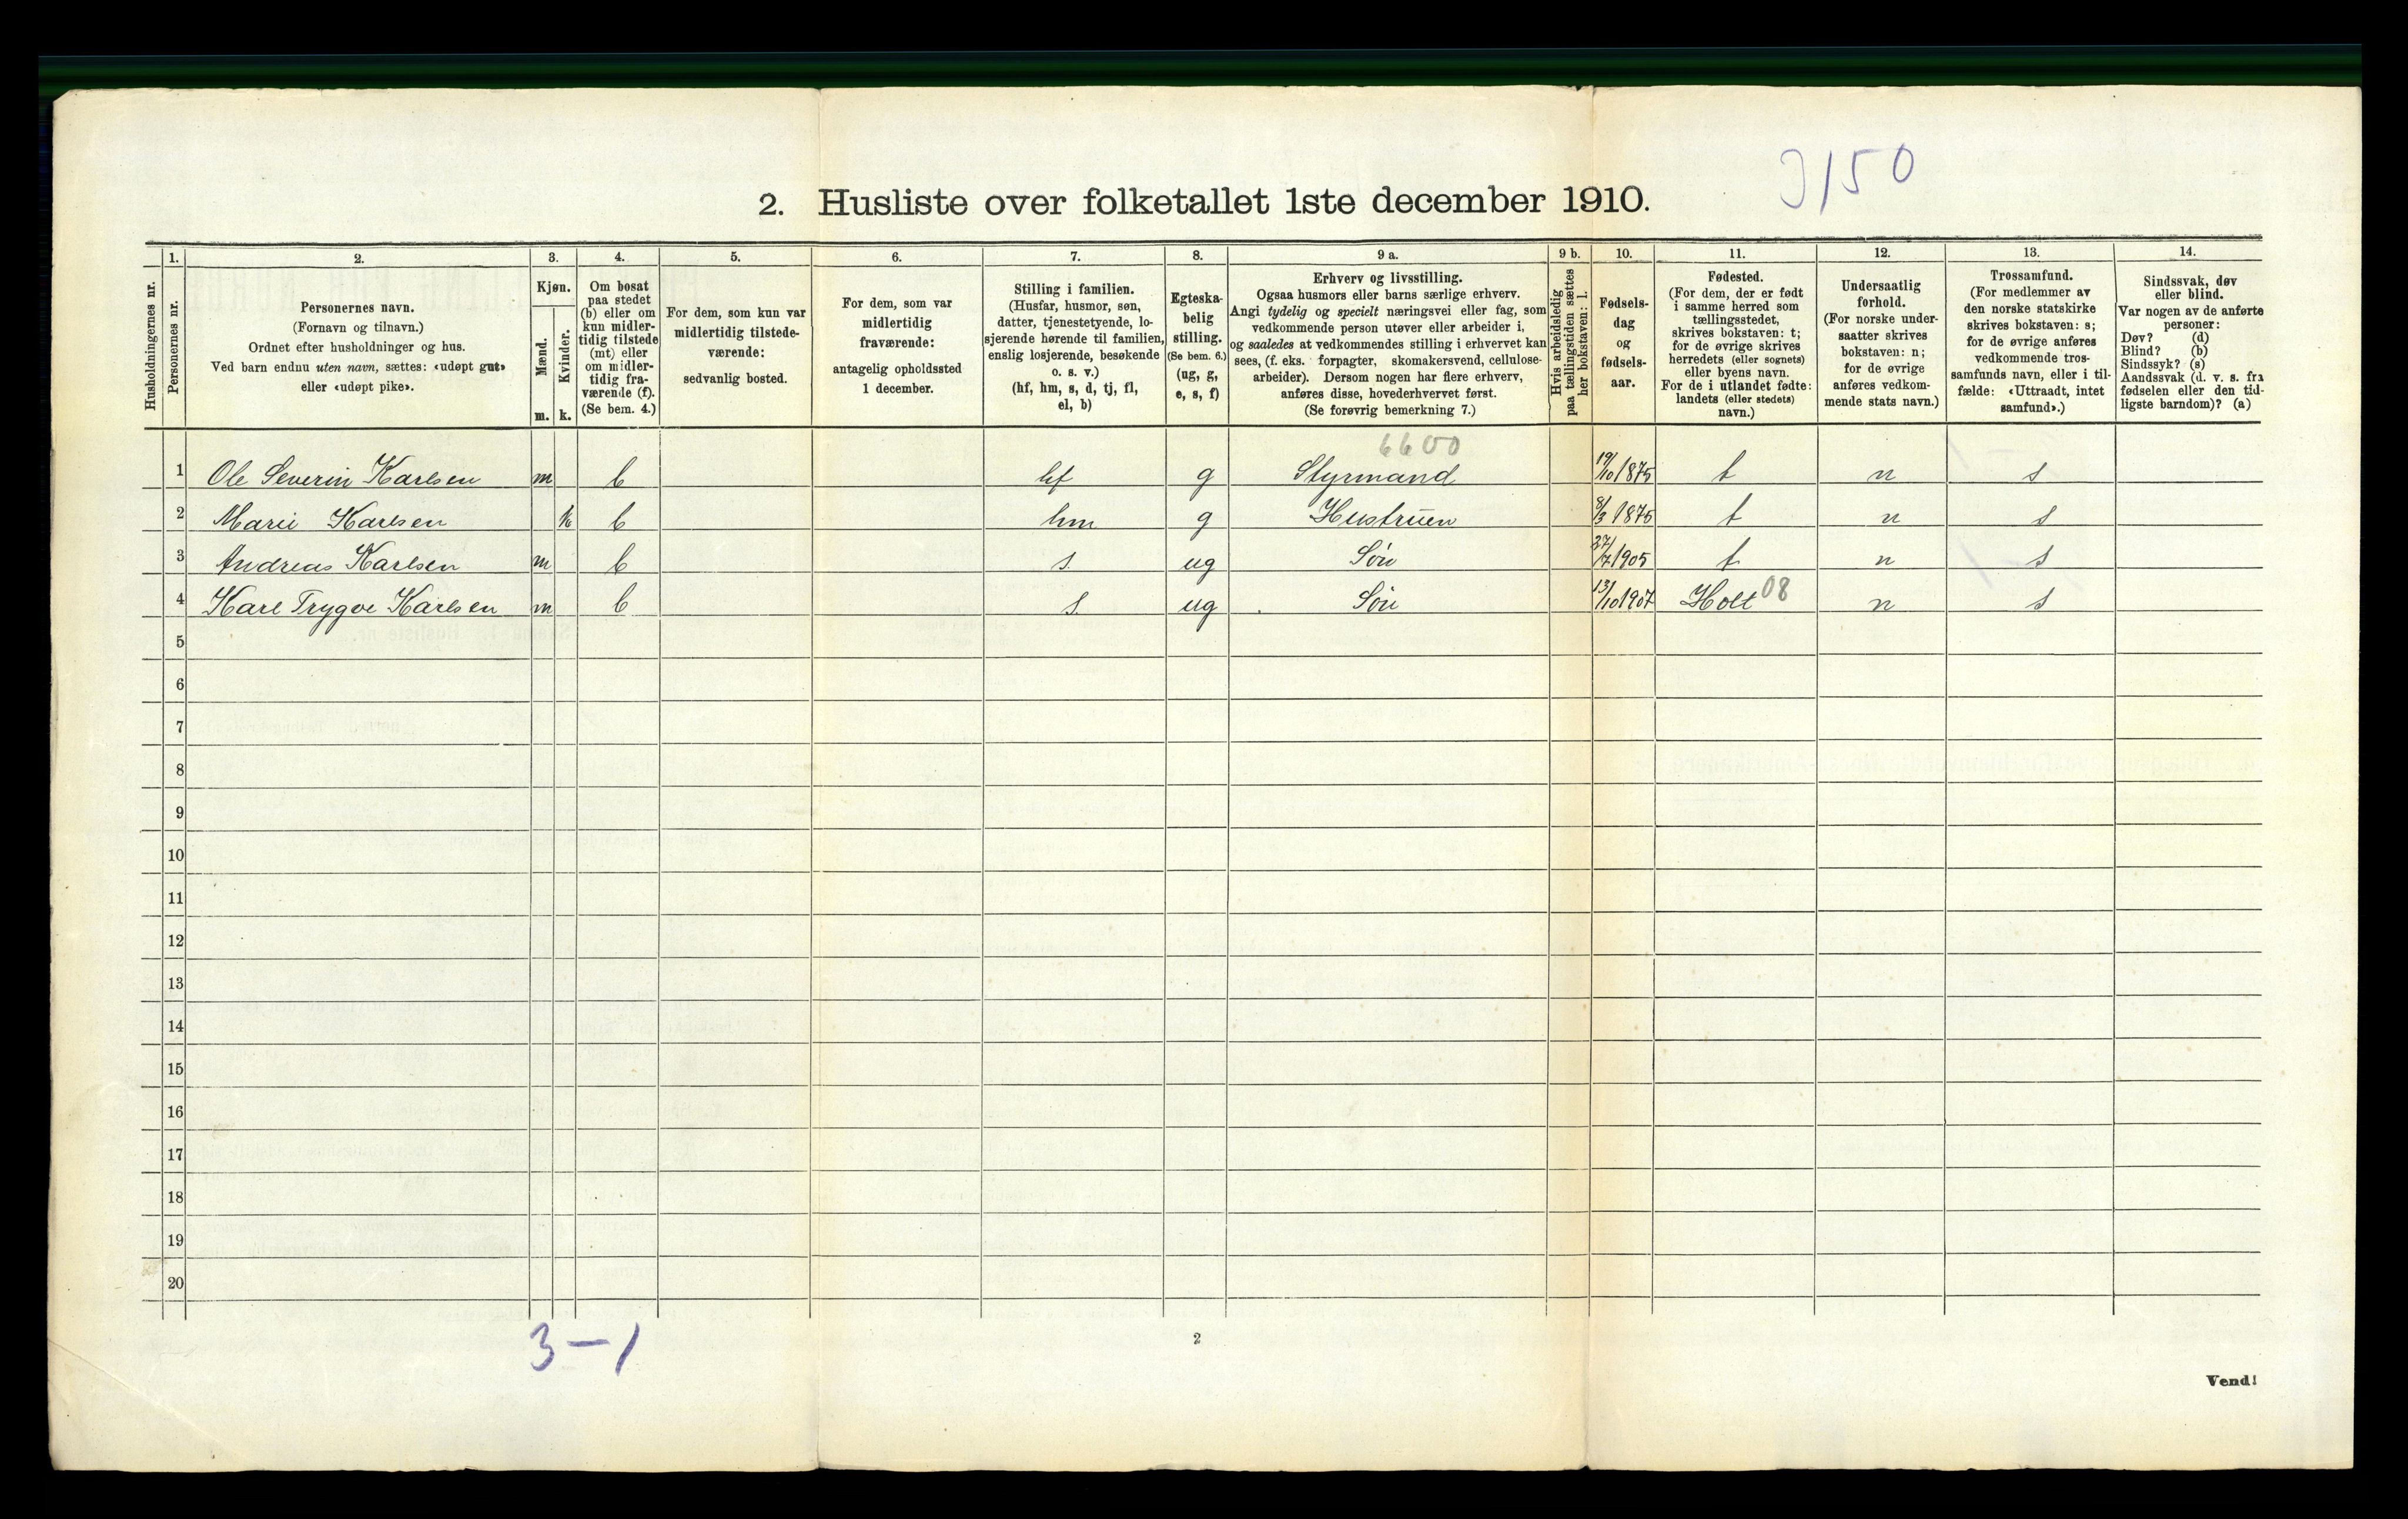 3150
2. Husliste over folketallet 1ste december 1910.
1. 2. 3. 4. 5. 6. 7. 8. 9 a. 9 b. 10. 11. 12. 13. 14.
Husholdningernes nr.
Personernes nr.
Personernes navn.
(Fornavn og tilnavn.)
Ordnet efter husholdninger og hus.
Ved barn endnu uten navn, sættes: «udøpt gut»
eller «udøpt pike».
Kjøn.
Mænd.
Kvinder.
m. k.
Om bosat
paa stedet
(b) eller om
kun midler-
tidig tilstede
(mt) eller
om midler-
tidig fra-
værende (f).
(Se bem. 4.)
For dem, som kun var
midlertidig tilstede-
værende:
sedvanlig bosted.
For dem, som var
midlertidig
fraværende:
antagelig opholdssted
1 december.
Stilling i familien.
(Husfar, husmor, søn,
datter, tjenestetyende, lo-
sjerende hørende til familien,
enslig losjerende, besøkende
o. s. v.)
(hf, hm, s, d, tj, fl,
el, b)
Egteska-
belig
stilling.
(Se bem. 6.)
(ug, g,
e, s, f)
Erhverv og livsstilling.
Ogsaa husmors eller barns særlige erhverv.
Angi tydelig og specielt næringsvei eller fag, som
vedkommende person utøver eller arbeider i,
og saaledes at vedkommendes stilling i erhvervet kan
sees, (f. eks. forpagter, skomakersvend, cellulose-
arbeider). Dersom nogen har flere erhverv,
anføres disse, hovederhvervet først.
(Se forøvrig bemerkning 7.)
Hvis arbeidsledig
paa tællingstiden sættes
her bokstaven: l.
Fødsels-
dag
og
fødsels-
aar.
Fødested.
(For dem, der er født
i samme herred som
tællingsstedet,
skrives bokstaven: t;
for de øvrige skrives
herredets (eller sognets)
eller byens navn.
For de i utlandet fødte:
landets (eller stedets)
navn.)
Undersaatlig
forhold.
(For norske under-
saatter skrives
bokstaven: n;
for de øvrige
anføres vedkom-
mende stats navn.)
Trossamfund.
(For medlemmer av
den norske statskirke
skrives bokstaven: s;
for de øvrige anføres
vedkommende tros-
samfunds navn, eller i til-
fælde: «Uttraadt, intet
samfund».)
Sindssvak, døv
eller blind.
Var nogen av de anførte
personer:
Døv? (d)
Blind? (b)
Sindssyk? (s)
Aandssvak (d. v. s. fra
fødselen eller den tid-
ligste barndom)? (a)
6600
1 Ole Severin Karlsen m b hf g Styrmand 19/10 1875 t n s
2 Marie Karlsen k b hm g Hustruen 8/3 1875 t n s
3 Andreas Karlsen m b s. ug Søn 27/7 1905 t n s
4 Karl Trygve Karlsen m b s. ug Søn 13/10 1907 Holt 08 n s
5
6
7
8
9
10
11
12
13
14
15
16
17
18
19
20
3-1
2
Vend!